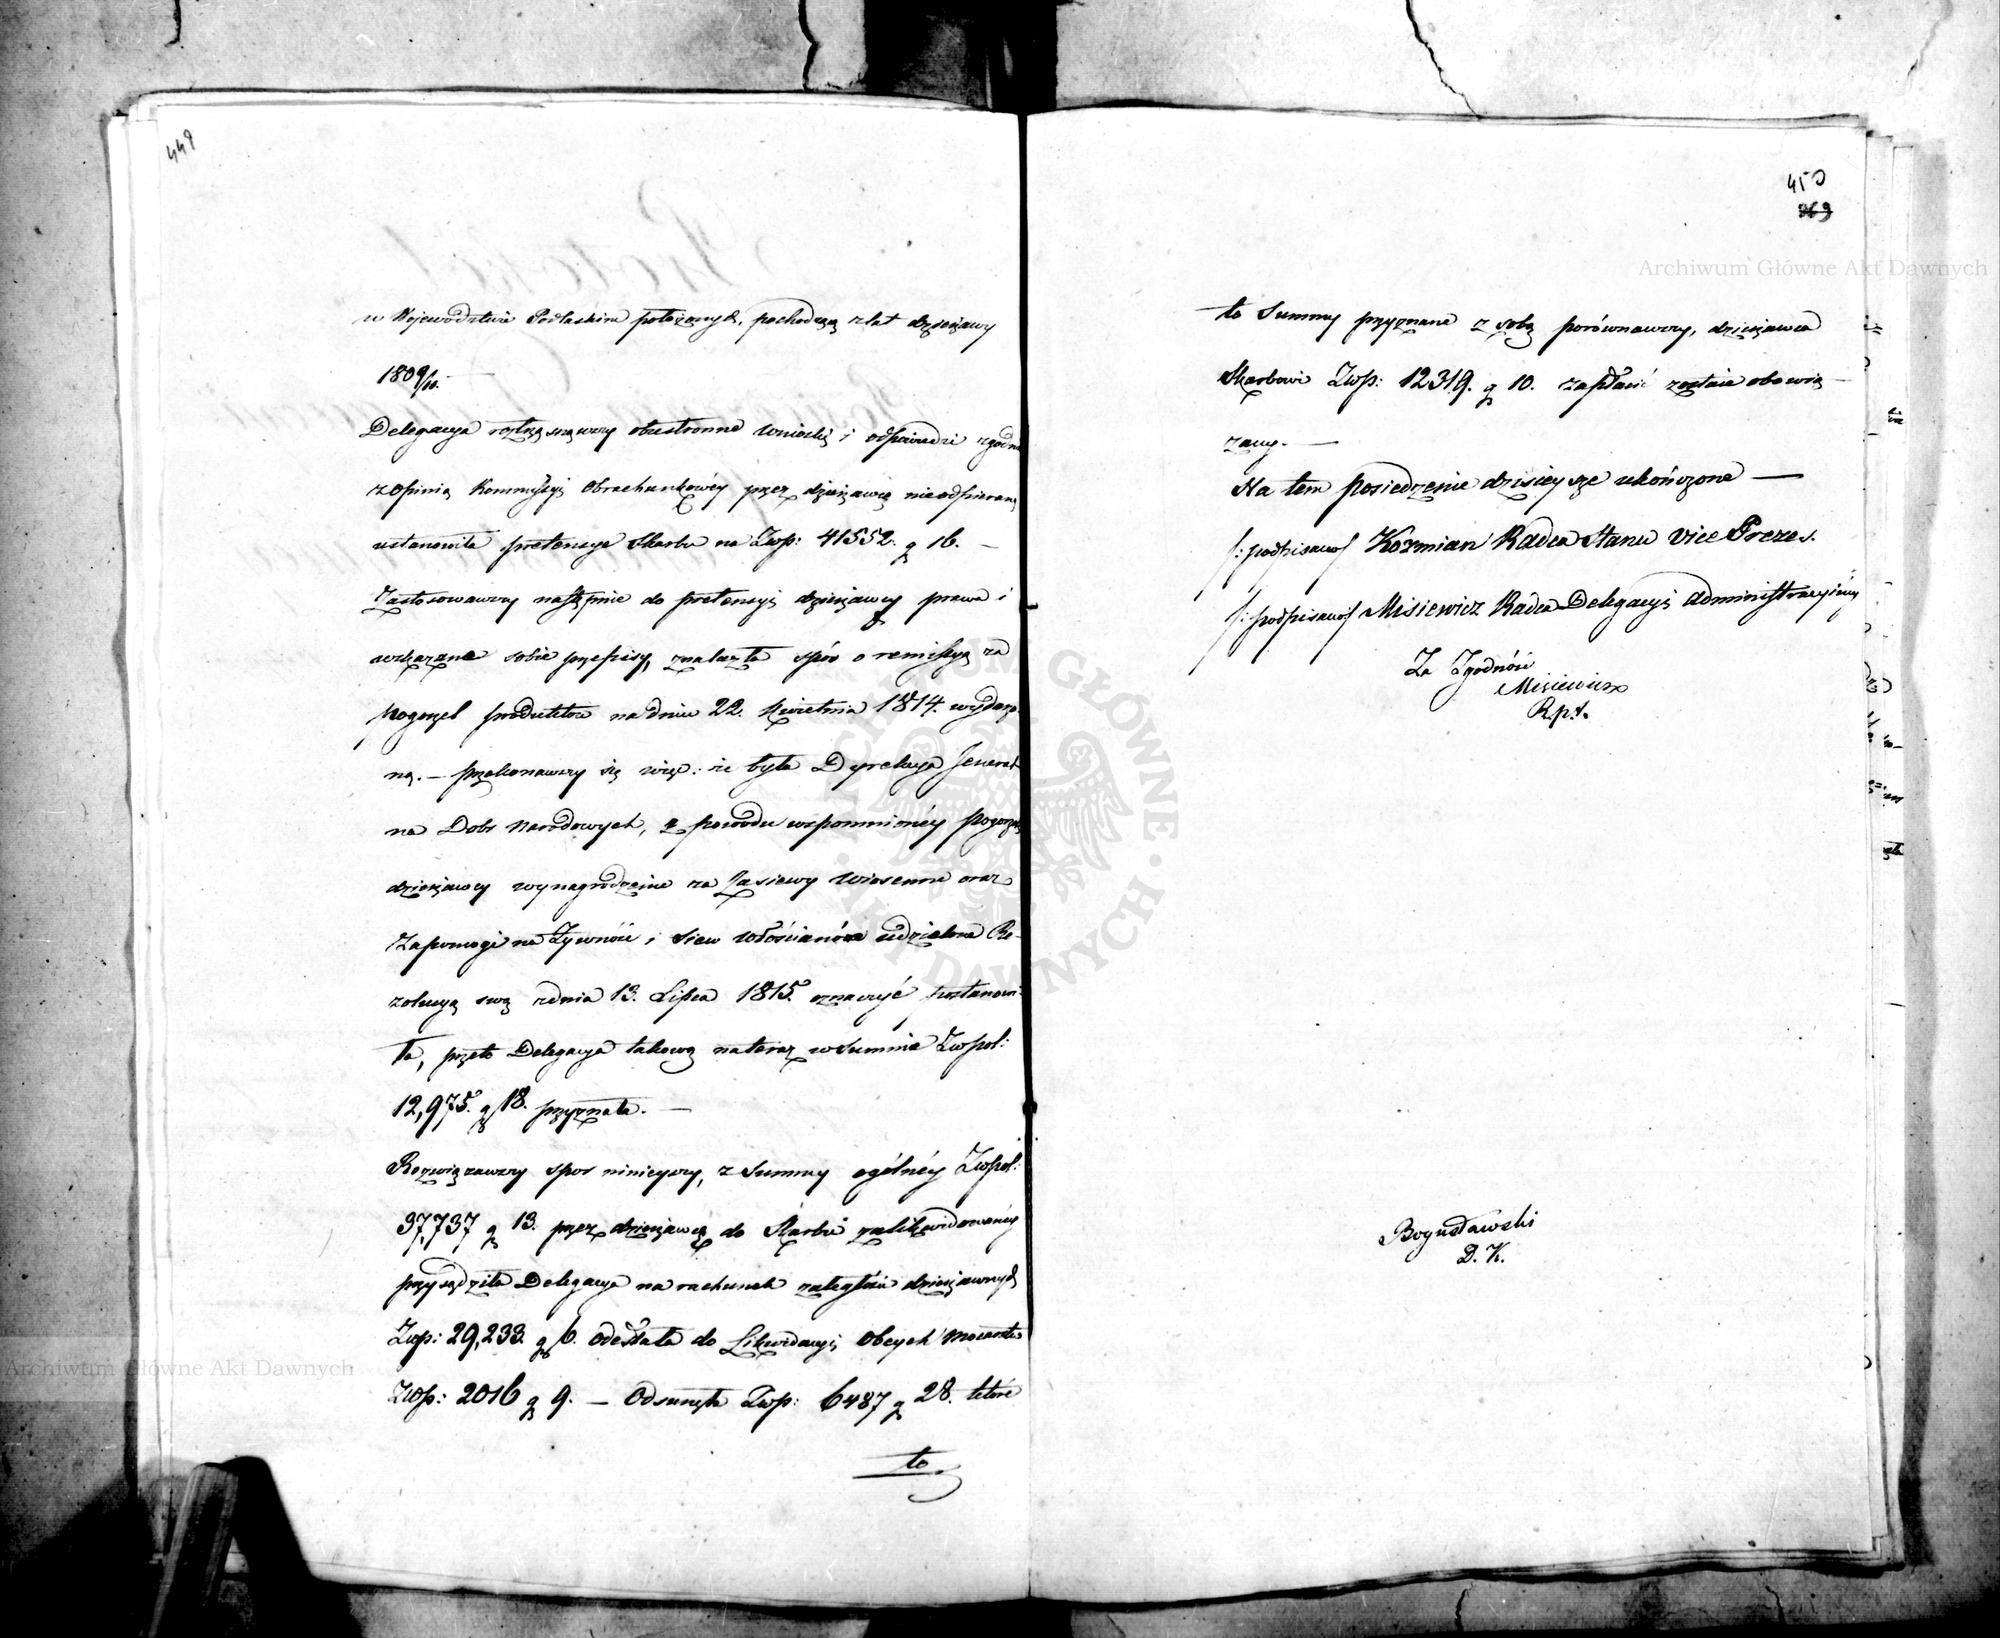 449
w Woiewodztwie Podlaskim położonych, pochodzącą z lat dzierżawy
1809/10. —
Delegacya roztrząsnąwszy obustronne wnioski i odpowiedzi zgodnie
z opinią Kommyssyi Obrachunkowéy przez dzierżawcę nieodpieraną
ustanowiła pretensye Skarbu na Złłp: 41552. g 16. —
Zastosowawszy następnie do pretensyi dzierżawcy prawa i
wskazane sobie przepisy, znalazła spór o remissyą za
pogorzel produktów na dniu 22. Kwietnia 1814. wydarzo-
ną. — przekonawszy się więc: że była Dyrekcya Jeneral
na Dobr Narodowych, z powodu wspomnionéy pogorzeli
dzierżawcy wynagrodzenie za Zasiewy Wiosenne oraz
Zapomogi na Żywność i Siew Włościanóm udzielone Re-
zolucyą swą z dnia 13. Lipca 1815. oznaczyć postanowi-
ła, przeto Delegacya takową na teraz w Summie Złłpol:
12,975. g 18. przyznała. —
Rozwiązawszy spor ninieyszy, z Summy ogólnéy Złłpol:
37,737 g 13. przez dzierżawcę do Skarbu zalikwidowanéy
przysądziła Delegacya na rachunek zaległości dzierżawnych
Złłp: 29,233. g 6. odesłała do Likwidacyi Obcych Mocarstw
Złłp: 2016 g 9. — Odsunęła Złłp: 6487 g 28. które
to
450
969
Archiwum Główne Akt Dawnych
to Summy przyznane z sobą porównawszy, dzierżawca
Skarbowi Złłp: 12319. g 10. zapłacić zostaie obowią —
zany. —
Na tem posiedzenie dzisieysze ukończone —
/: podpisano/ Kozmian Radca Stanu Vice Prezes.
/: podpisano/ Misiewicz Radca Delegacyi Administracyiney
Za Zgodność
Misiewicz
R.p.t.
Bogusławski
D. K.
ARCHIWUM GŁÓWNE · AKT DAWNYCH ·
Archiwum Główne Akt Dawnych